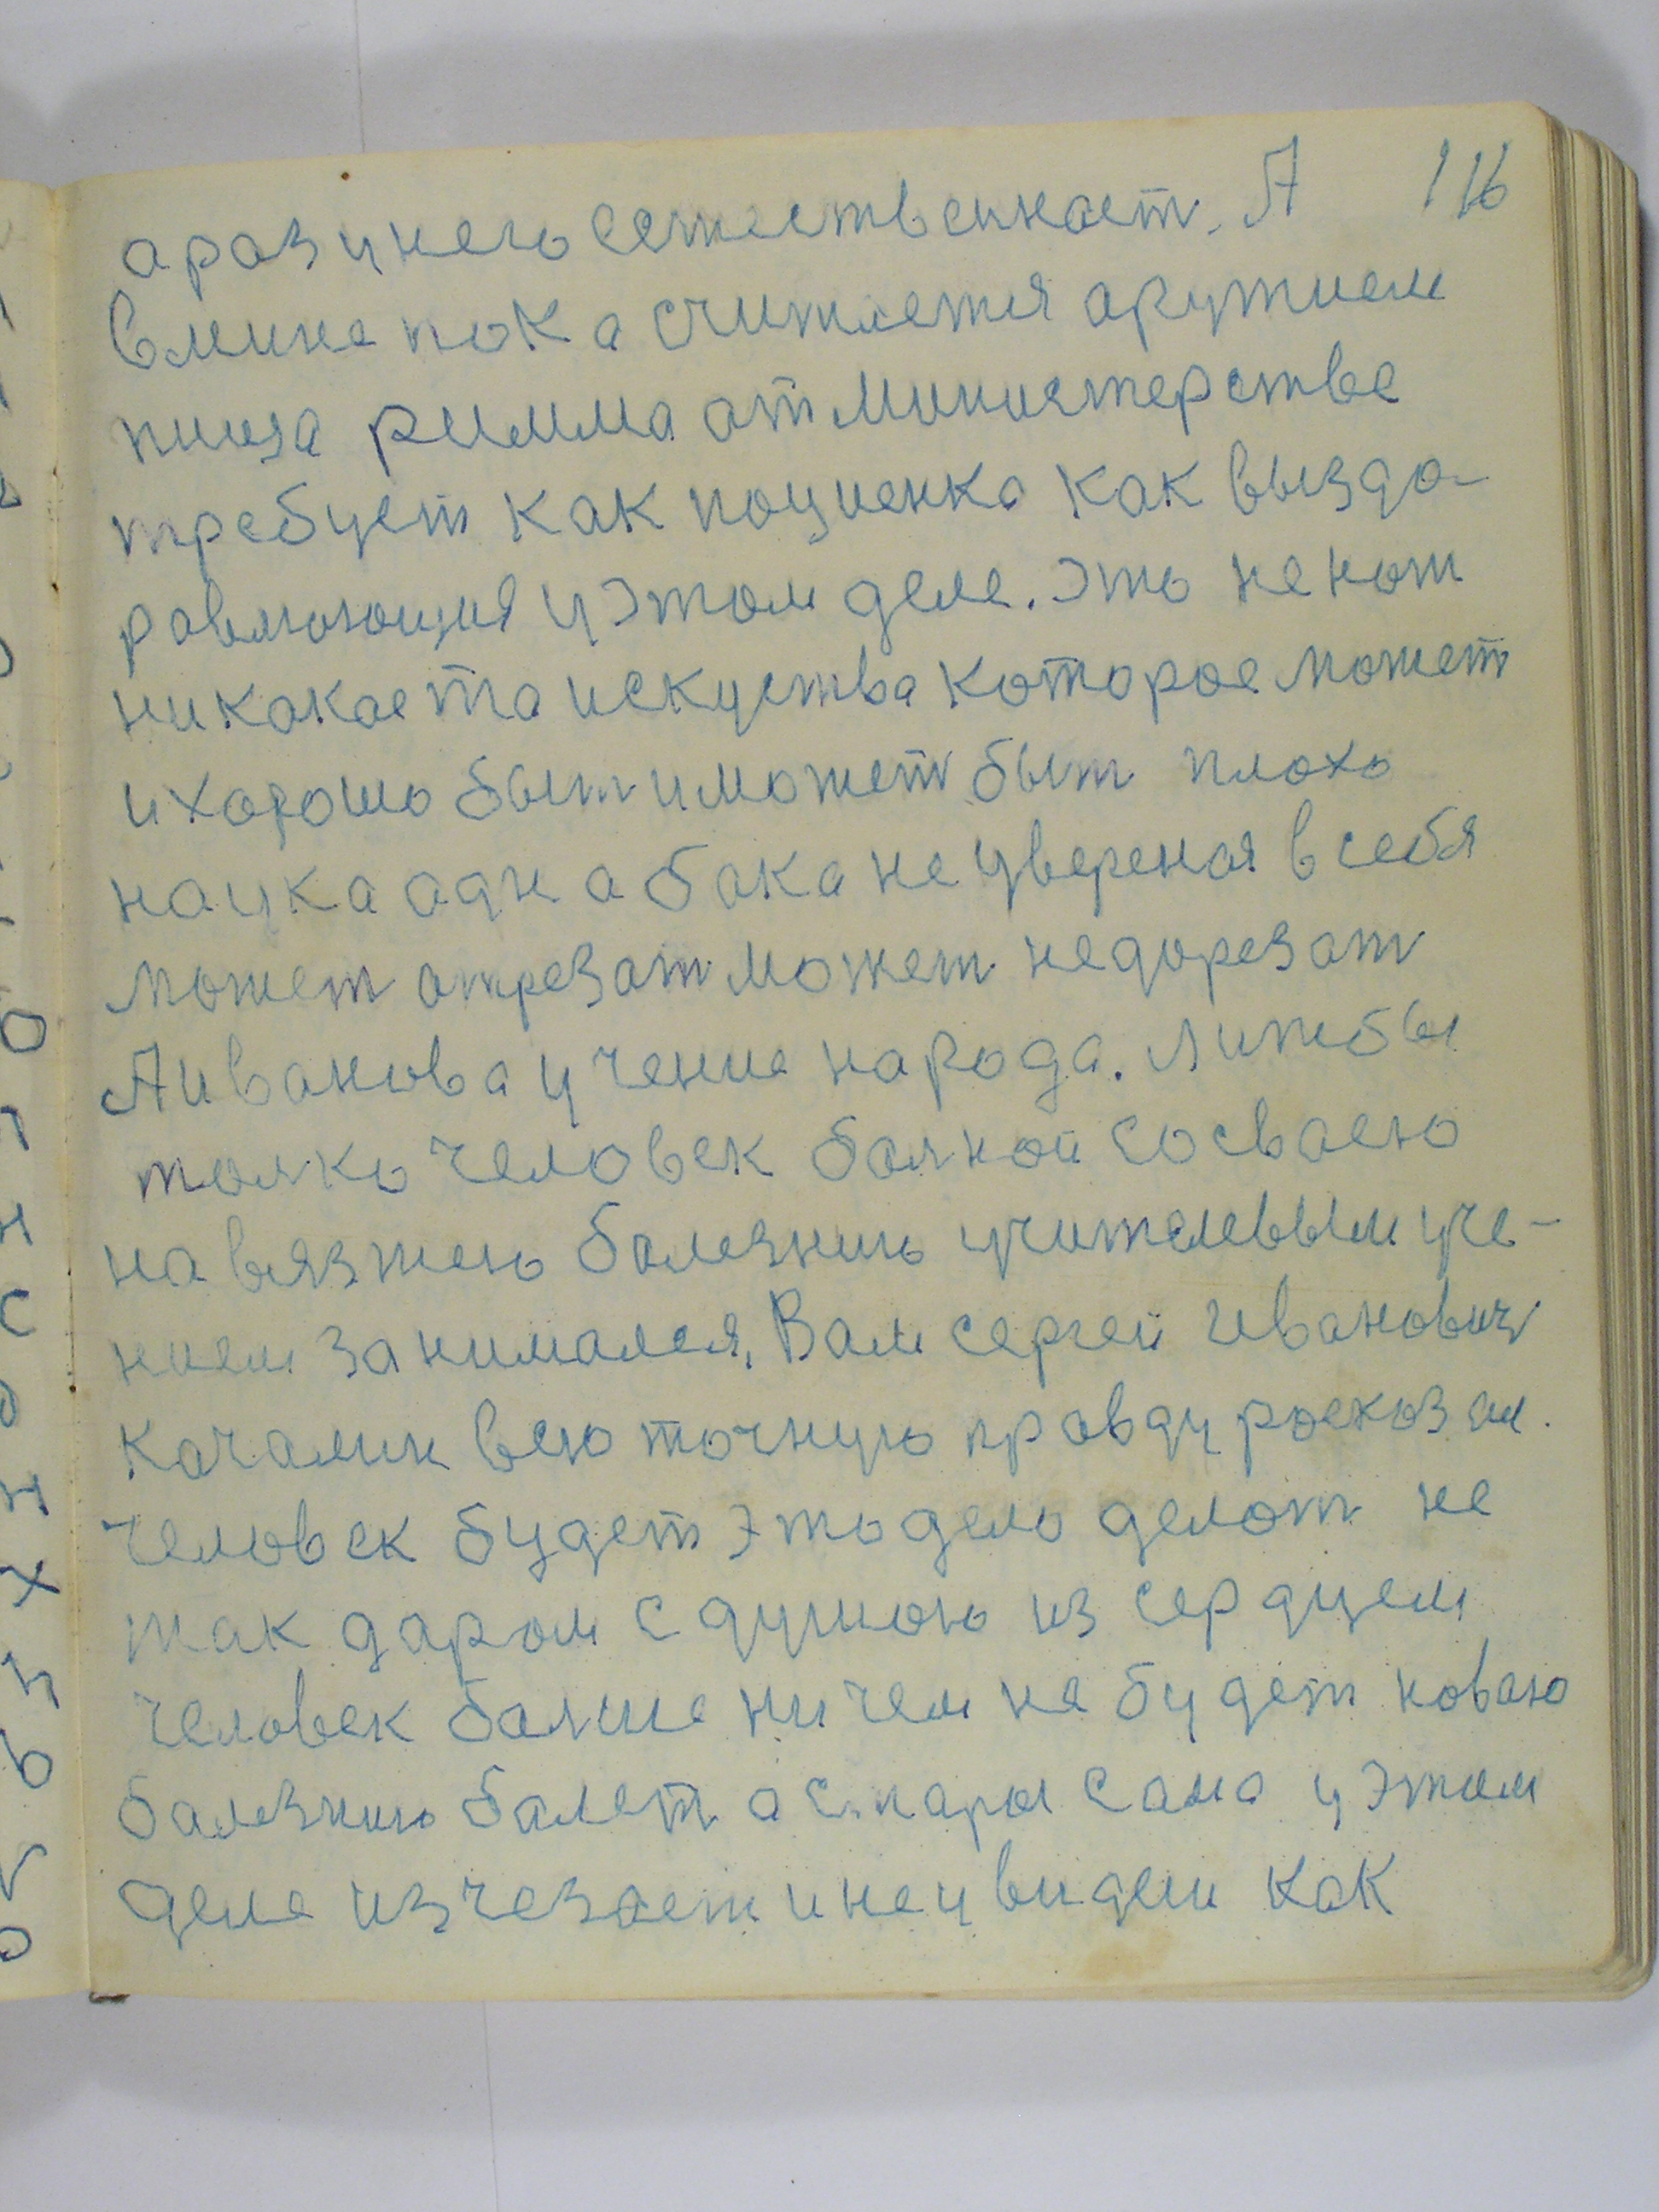 116
а раз у него естественаст. А
в мине пока считается аружием
пииза римма от министерстве
требует как пациенка как вызда-
равлюющия у этом деле. Это не нот
ни какое та искуства которое может
и хорошо быт и может быт плохо
наука адна бака не увереная в себя
может отрезат может недорезат
А Иванова учение народа. Лижбы
толко человек балной со сваею
навязтею болезнию учителевым уче-
нием занимался. Вам Сергей Иванович
Качалин всю точную правду росказал.
Человек будет это дело делот не
так даром с душою из сердцем
человек балше ни чем не будет новаю
балезнию балет а стары сама у этом
деле изчезает и не увидели как